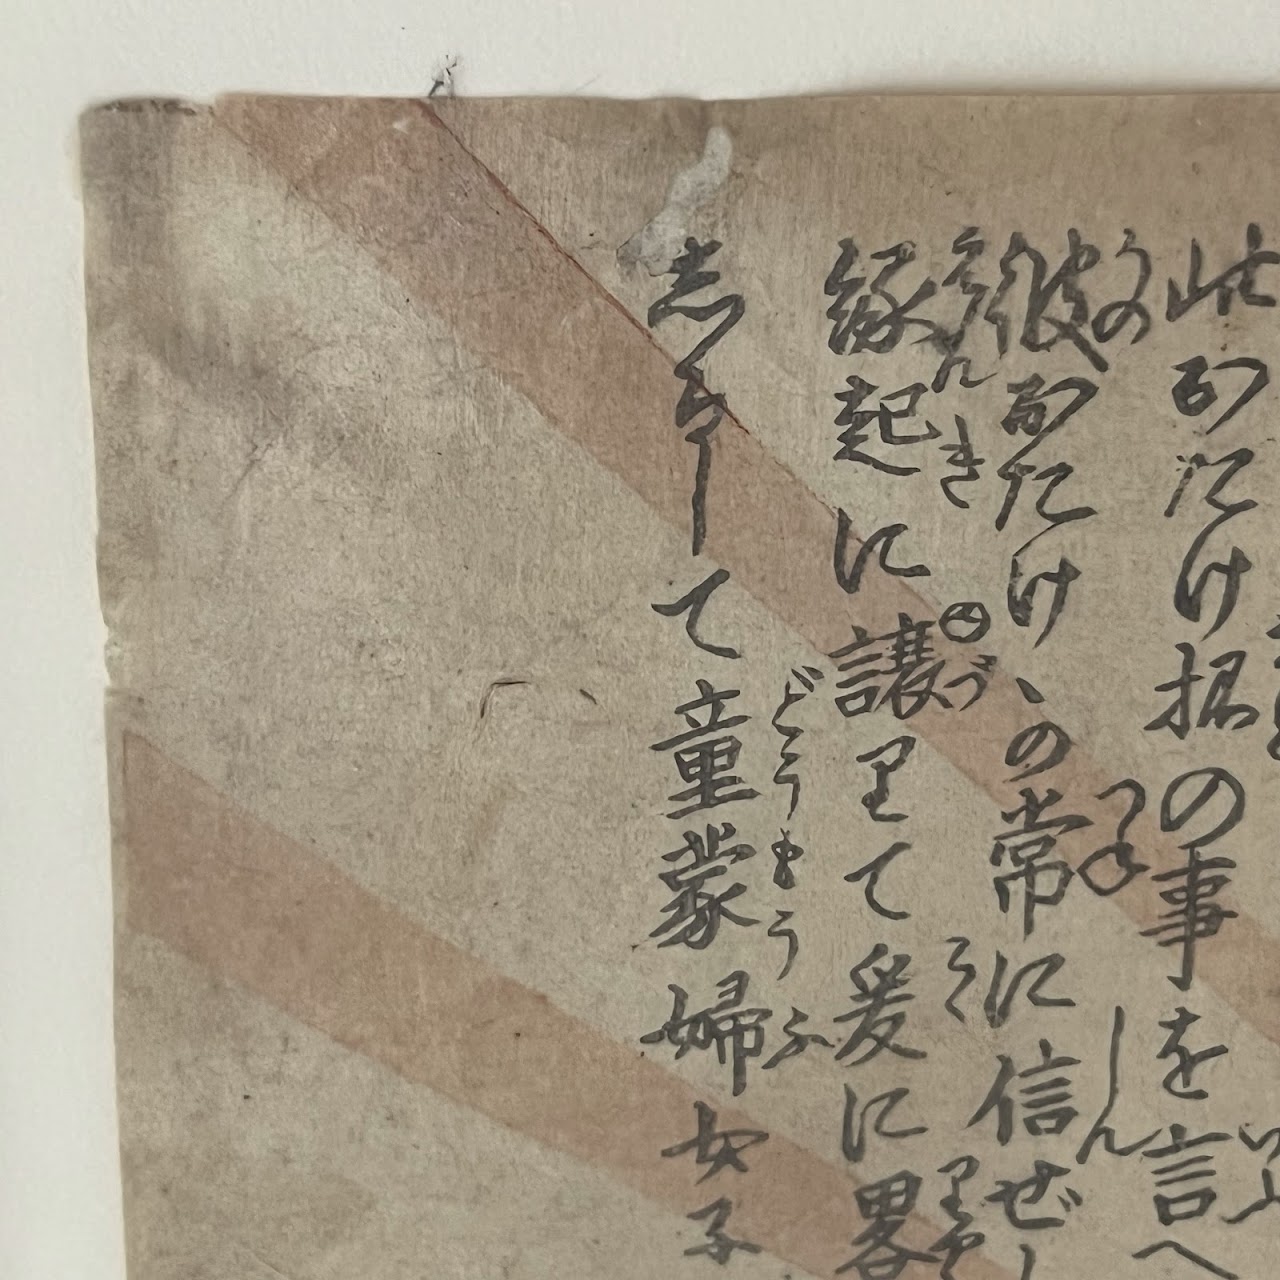 此おたけの事を言へ
彼おたけゝの常に信ぜし
縁起に譲りて爰に畧
志るして童蒙婦女子